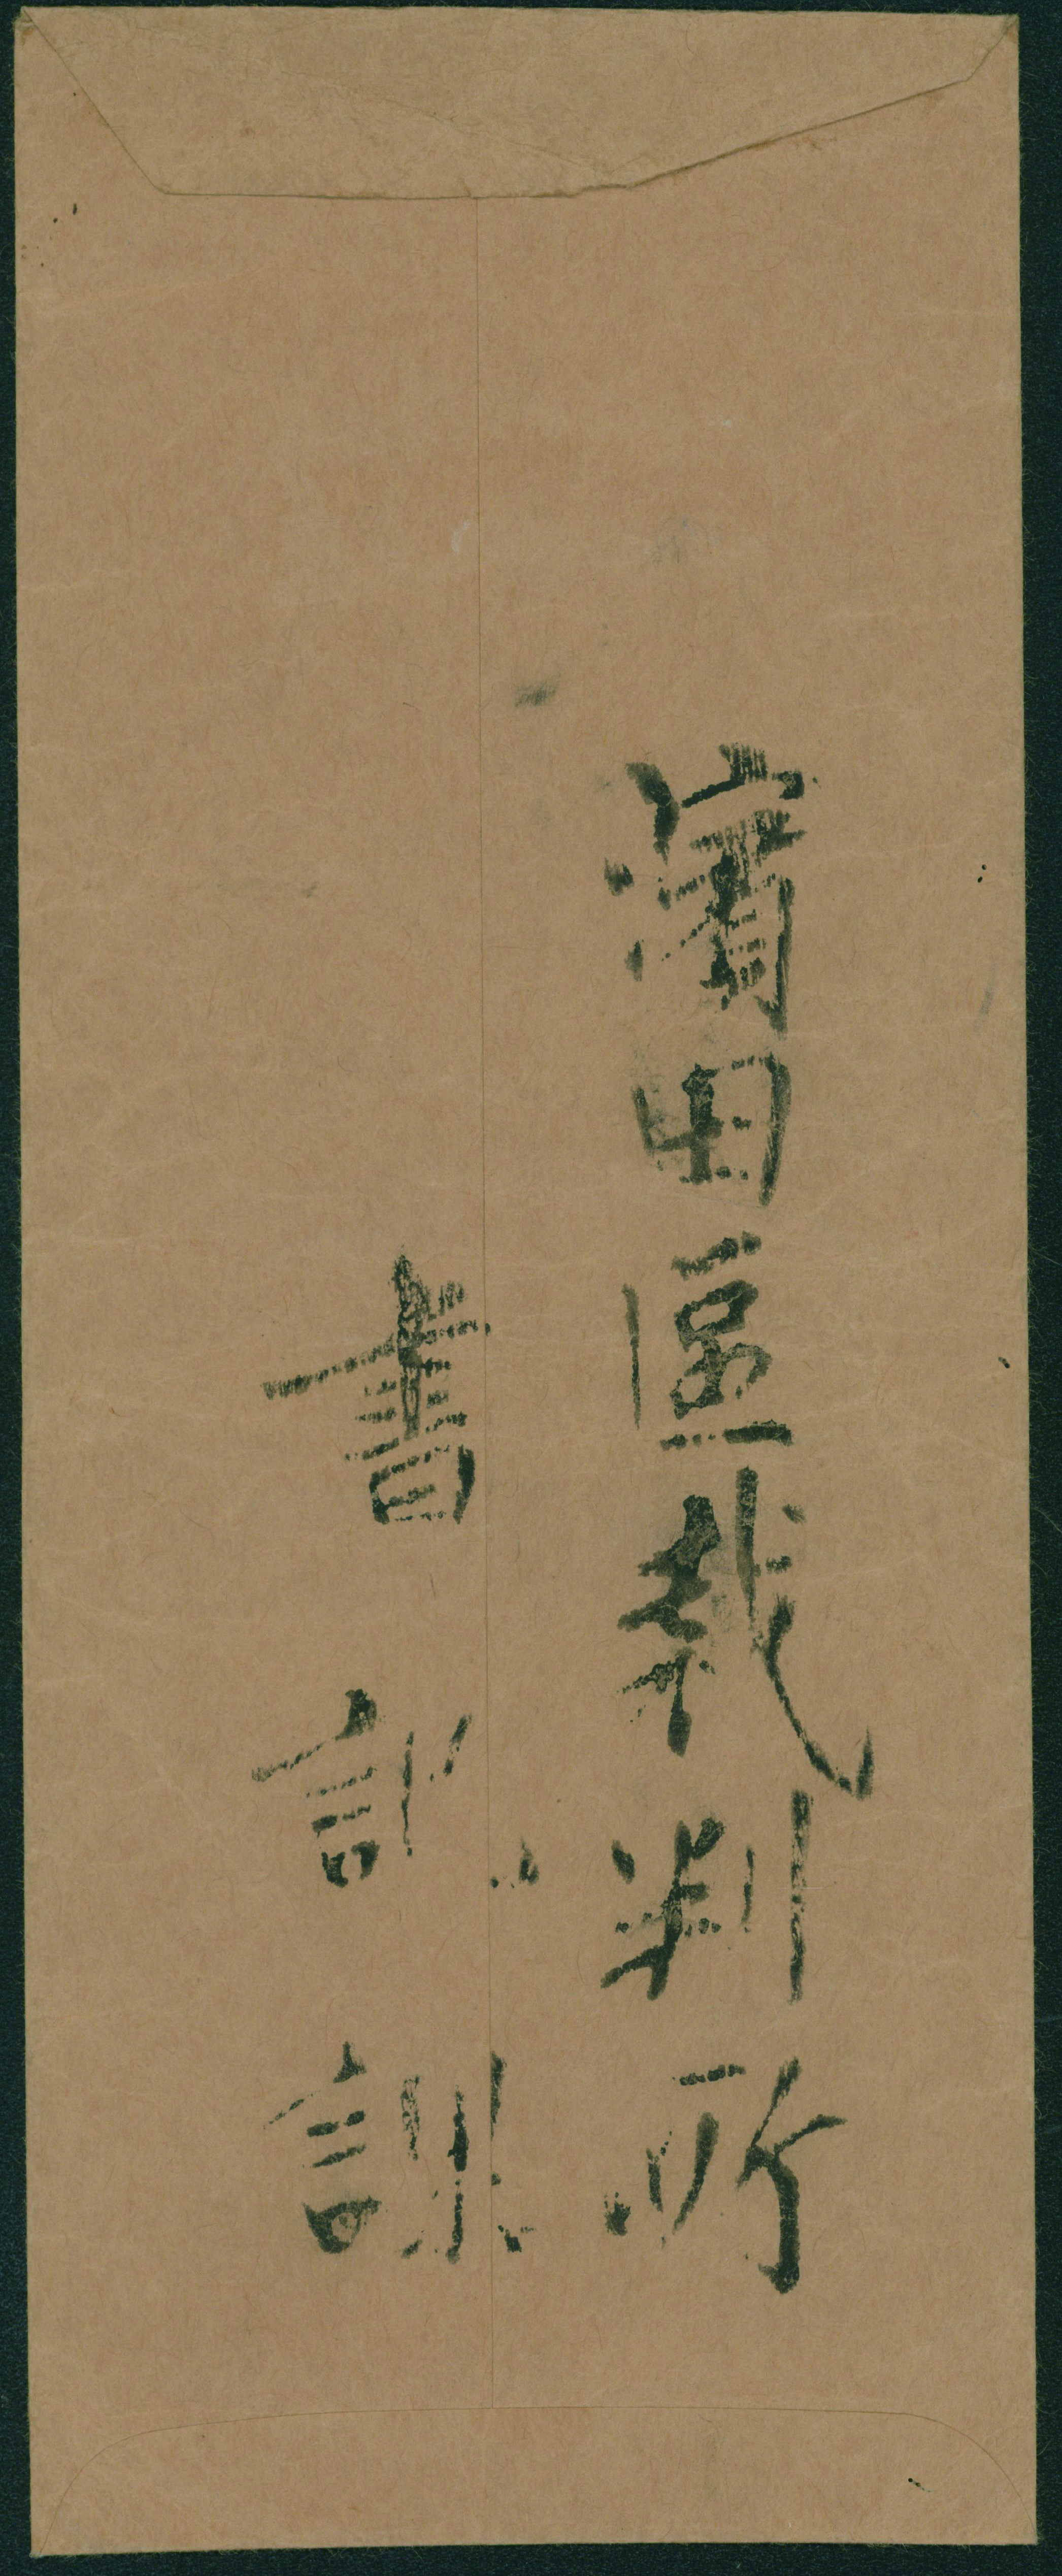 濱田區裁判所
書記課